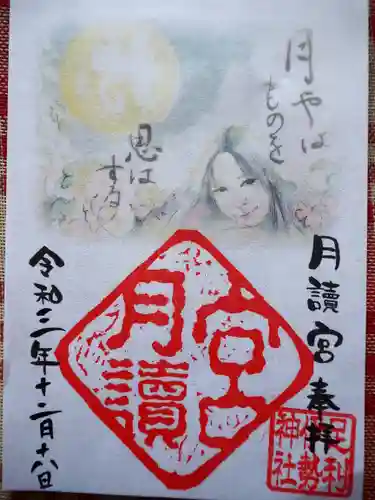 月やは
ものを
思は
する
月讀宮 奉拝
月讀
宮
足利
伊勢
神社
令和二年十二月十八日